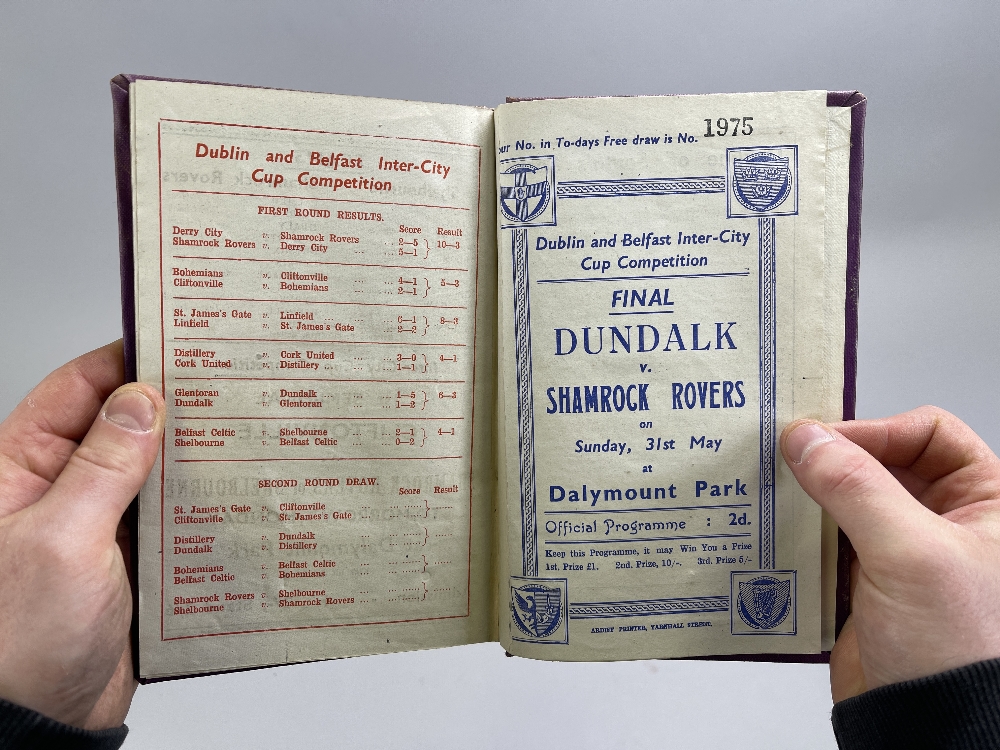 Dublin and Belfast Inter-City
Cup Competition
FIRST ROUND RESULTS.
Score Result
Derry City v. Shamrock Rovers ... 2—5 } 10—3
Shamrock Rovers v. Derry City ... ... 5—1
Bohemians v. Cliftonville ... ... 4—1 } 5—3
Cliftonville v. Bohemians ... ... 2—1
St. James's Gate v. Linfield ... ... 6—1 } 8—3
Linfield v. St. James's Gate ... 2—2
Distillery v. Cork United ... ... 3—0 } 4—1
Cork United v. Distillery ... ... 1—1
Glentoran v. Dundalk ... ... 1—5 } 6—3
Dundalk v. Glentoran ... ... 1—2
Belfast Celtic v. Shelbourne ... ... 2—1 } 4—1
Shelbourne v. Belfast Celtic ... 0—2
SECOND ROUND DRAW.
Score Result
St. James's Gate v. Cliftonville
Cliftonville v. St. James's Gate
Distillery v. Dundalk
Dundalk v. Distillery
Bohemians v. Belfast Celtic
Belfast Celtic v. Bohemians
Shamrock Rovers v. Shelbourne
Shelbourne v. Shamrock Rovers
ur No. in To-days Free draw is No. 1975
Dublin and Belfast Inter-City
Cup Competition
FINAL
DUNDALK
v.
SHAMROCK ROVERS
on
Sunday, 31st May
at
Dalymount Park
Official Programme : 2d.
Keep this Programme, it may Win You a Prize
1st. Prize £1. 2nd. Prize, 10/-. 3rd. Prize 5/-
ARDIFF PRINTER, YARNHALL STREET.